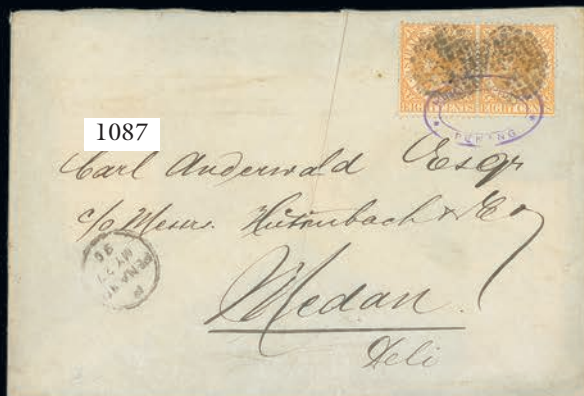 EIGHT CENTS EIGHT CENTS
PENANG
1087
Carl Anderwald Esqr
c/o Messrs. Hüttenbach & Co
Medan.
Deli
PENANG
MY 27
96